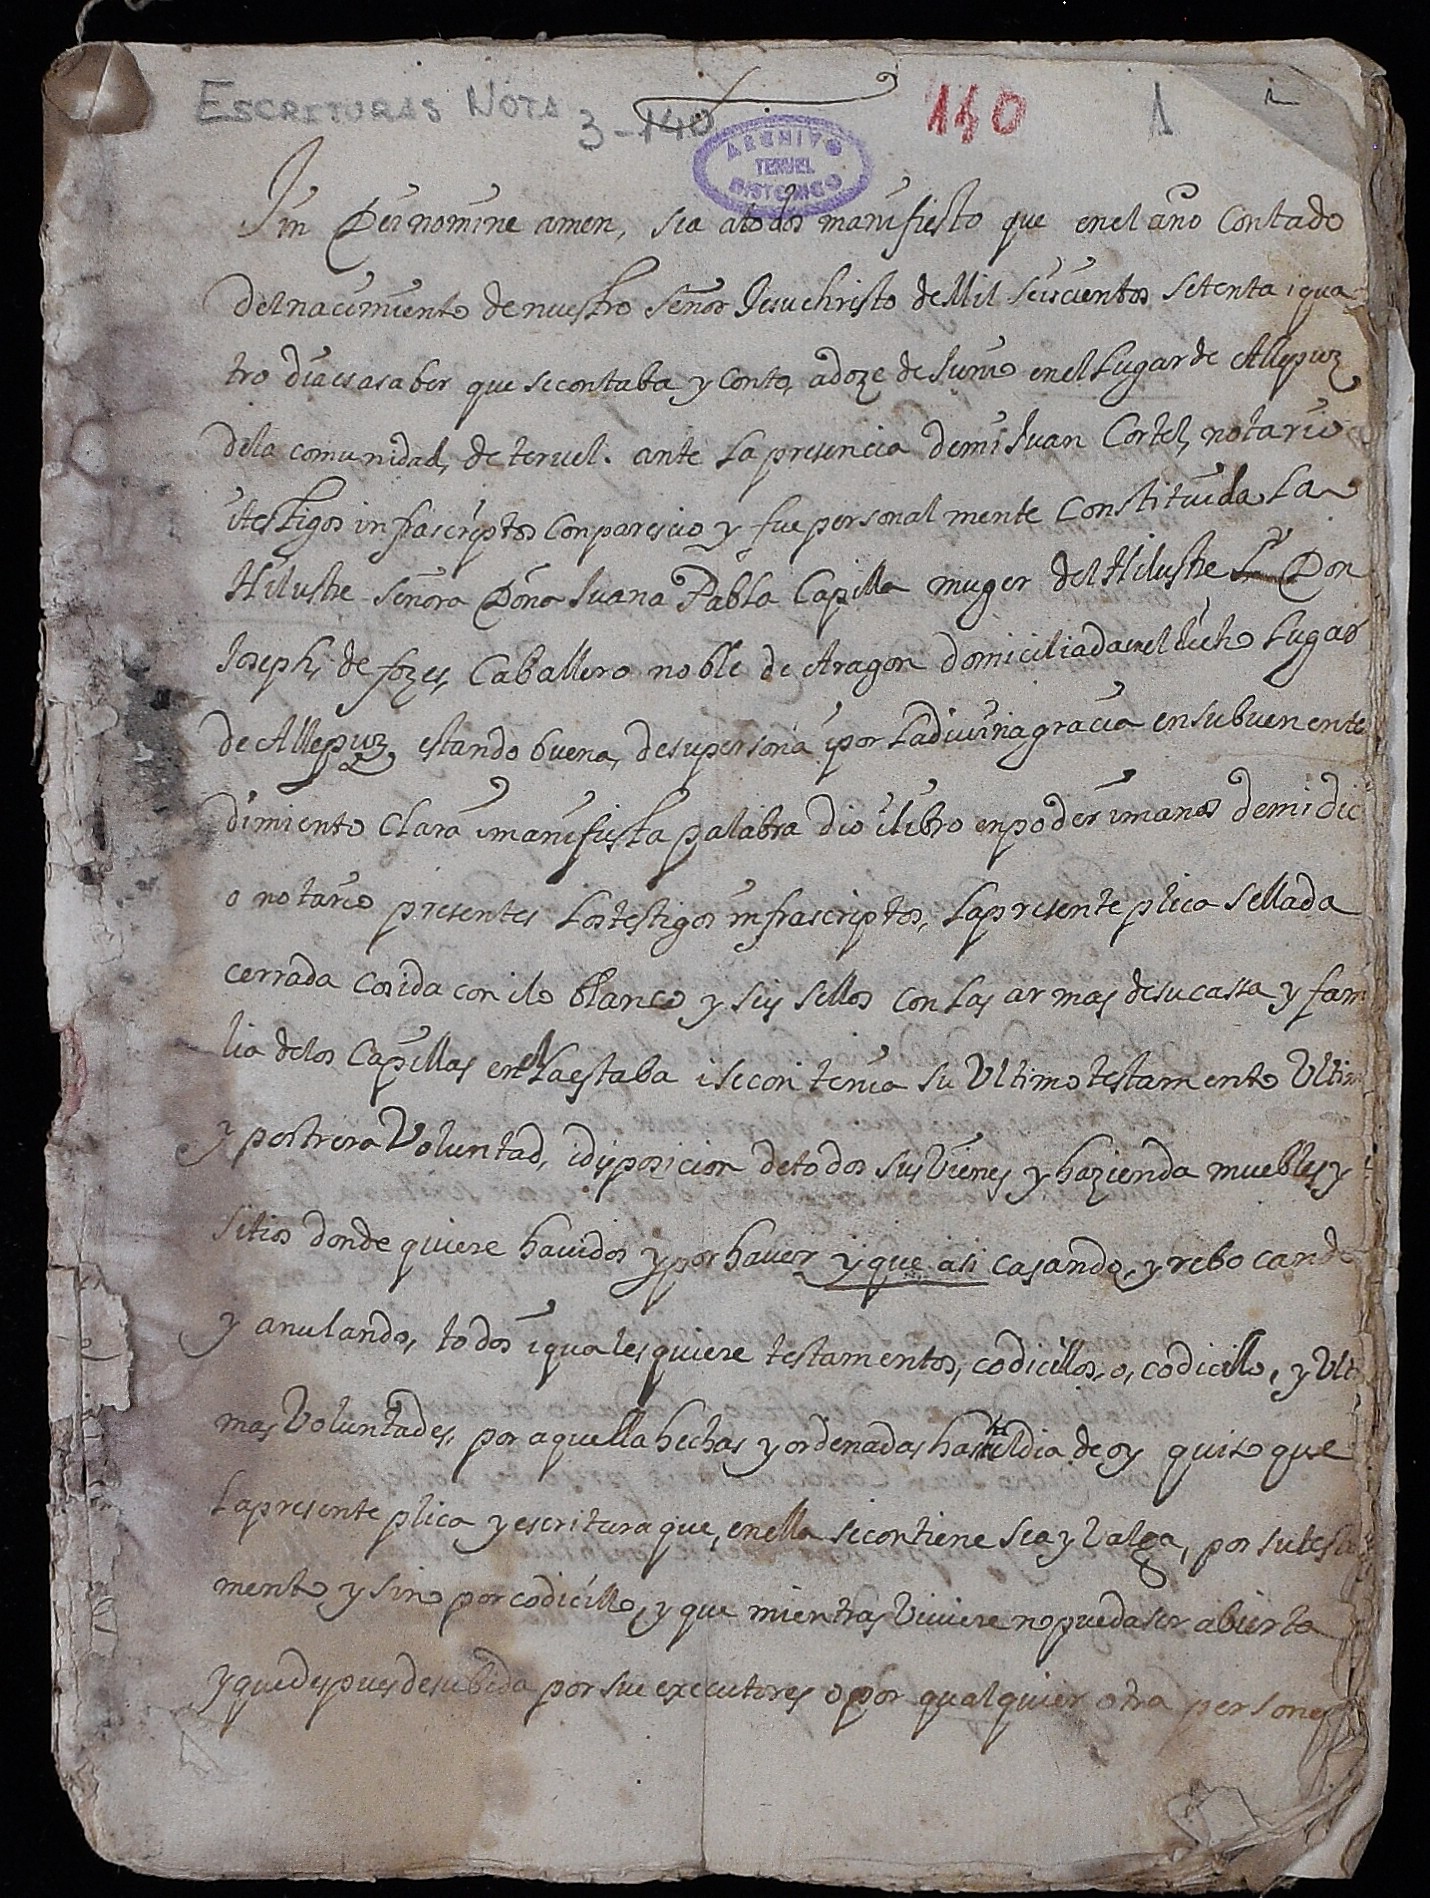 ESCRITURAS NOTA 3-140
140
1
ARCHIVO
TERUEL
HISTORICO
In Dei nomine amen, sea atodos manifiesto que enel año Contado
del nacimiento de nuestro Señor Jesuchristo de Mil seiscientos setenta iqua
tro dia es asaber que secontaba y conto, adoze de Junio enel Lugar de Allepuz
dela comunidad, de teruel. ante la presencia demi Juan Cortel, notario
itestigos infrascriptos Conparesio y fue personal mente Constituida La
Hilustre Señora Doña Juana Pabla Capilla muger del Hilustre Sr Don
Joseph, de fozes, Caballero noble de Aragon domiciliada enel dicho Lugar
de Allepuz, estando buena, desupersona ipor Ladiuina gracia ensubuen ente
dimiento Clara imanifiesta palabra dio ilibro enpoder imanos demi dic
o notario presentes Lostestigos infrascriptos, Lapresente plica sellada
cerrada cosida con ilo blanco y seis sellos con Las armas desucassa y fam
lia delos Capillas enella estaba isecontenia su Ultimo testamento Ultim
y postrera Voluntad, idisposicion detodos sus Vienes y hazienda muebles y
sitios donde quiere hauidos y por hauer y que asi casando, y rebocando
y anulando, todos iqualesquiere testamentos, codicillos, o, codicillo, y Ulti
mas Voluntades, por aquella hechas y ordenadas hasta eldia de oy quiso que
Lapresente plica y escritura que, enella secontiene sea y Valga, por su testa
mento y sino por codicillo, y que mientras Viuiere nopuedaser abierta
y quedespues desubida por sus executores o por qualquier otra persona